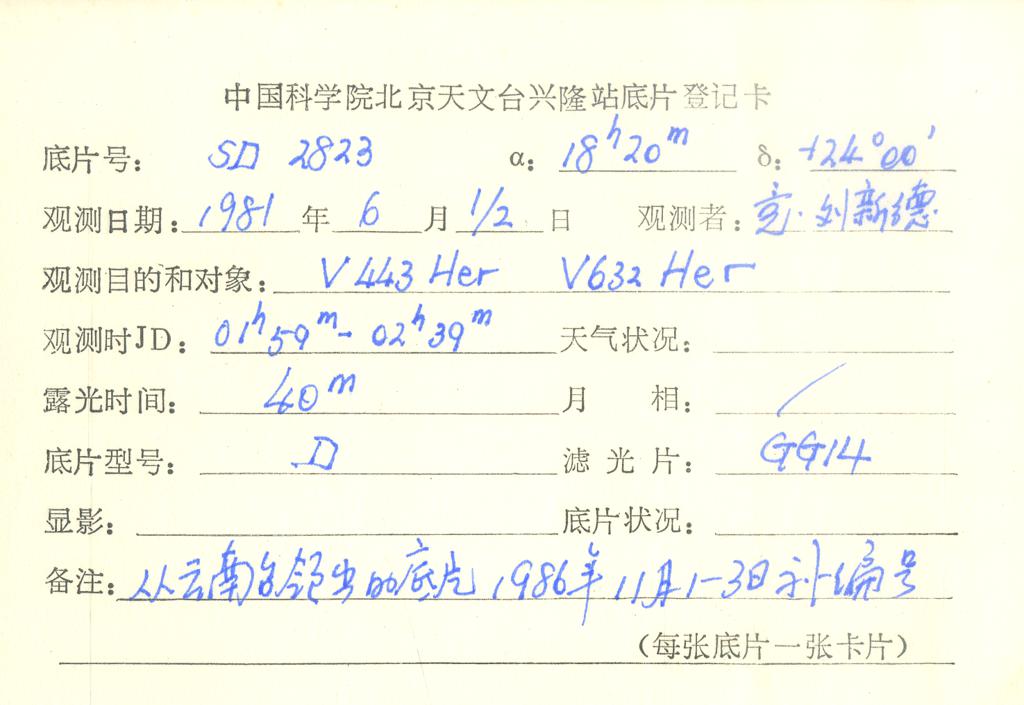 中国科学院北京天文台兴隆站底片登记卡
底片号: SD 2823 α: 18ʰ20ᵐ δ: +24°00′
观测日期: 1981 年 6 月 1/2 日 观测者: 竞·刘新德
观测目的和对象: V443 Her V632 Her
观测时JD: 01ʰ59ᵐ - 02ʰ39ᵐ 天气状况:
露光时间: 40ᵐ 月 相: /
底片型号: D 滤光片: GG14
显影: 底片状况:
备注: 从云南台领出的底片 1986年11月1-3日补编号
(每张底片一张卡片)